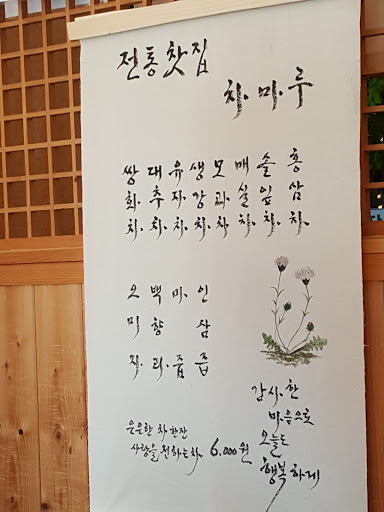 전통찻집
차마루
쌍화차
대추차
유자차
생강차
모과차
매실차
솔잎차
홍삼차
오미자
백향과
마즙
인삼즙
감사한
마음으로
오늘도
행복하게
은은한 차 한잔
사랑을 원하는 차 6,000원